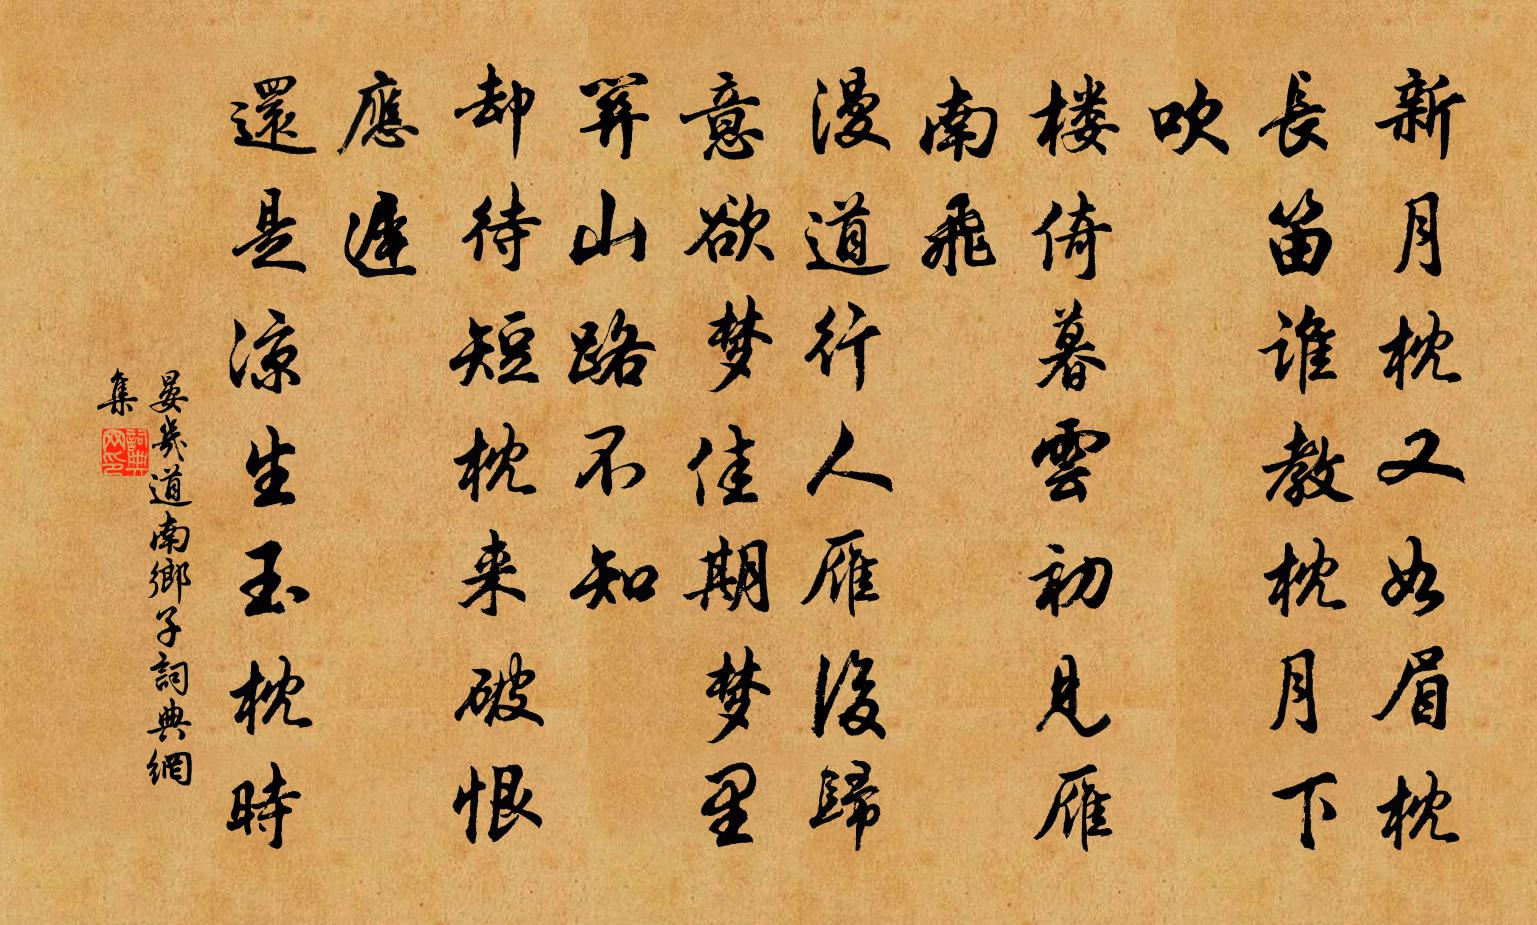 新月枕又如眉枕
長笛誰教枕月下
吹
楼倚暮雲初見雁
南飛
漫道行人雁後歸
意欲梦佳期梦里
關山路不知
却待短枕来破恨
應遲
還是涼生玉枕時
晏幾道南鄉子詞典網
集
詞典
网印